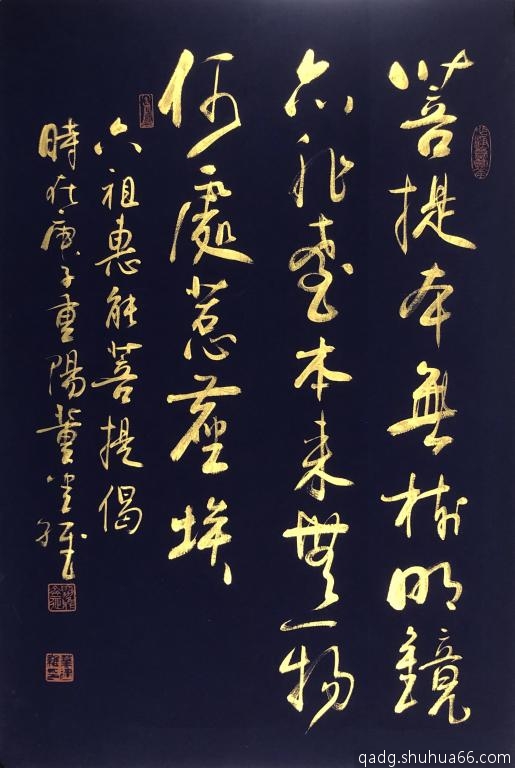 菩提本無樹明鏡
亦非臺本来無一物
何處惹塵埃
六祖惠能菩提偈
時在庚子重陽董
qadg.shuhua66.com